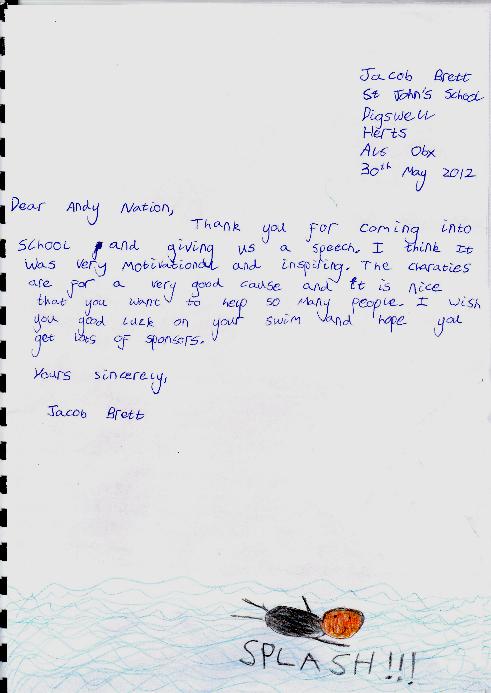 Jacob Brett
St John's School
Digswell
Herts
AL6 0bx
30th May 2012
Dear Andy Nation,
Thank you for coming into
School and giving us a speech. I think It
was very motivational and inspiring. The charaties
are for a very good cause and It is nice
that you want to help so many people. I wish
you good luck on your swim and hope you
get lots of sponsers.
Yours sincerely,
Jacob Brett
SPLASH!!!